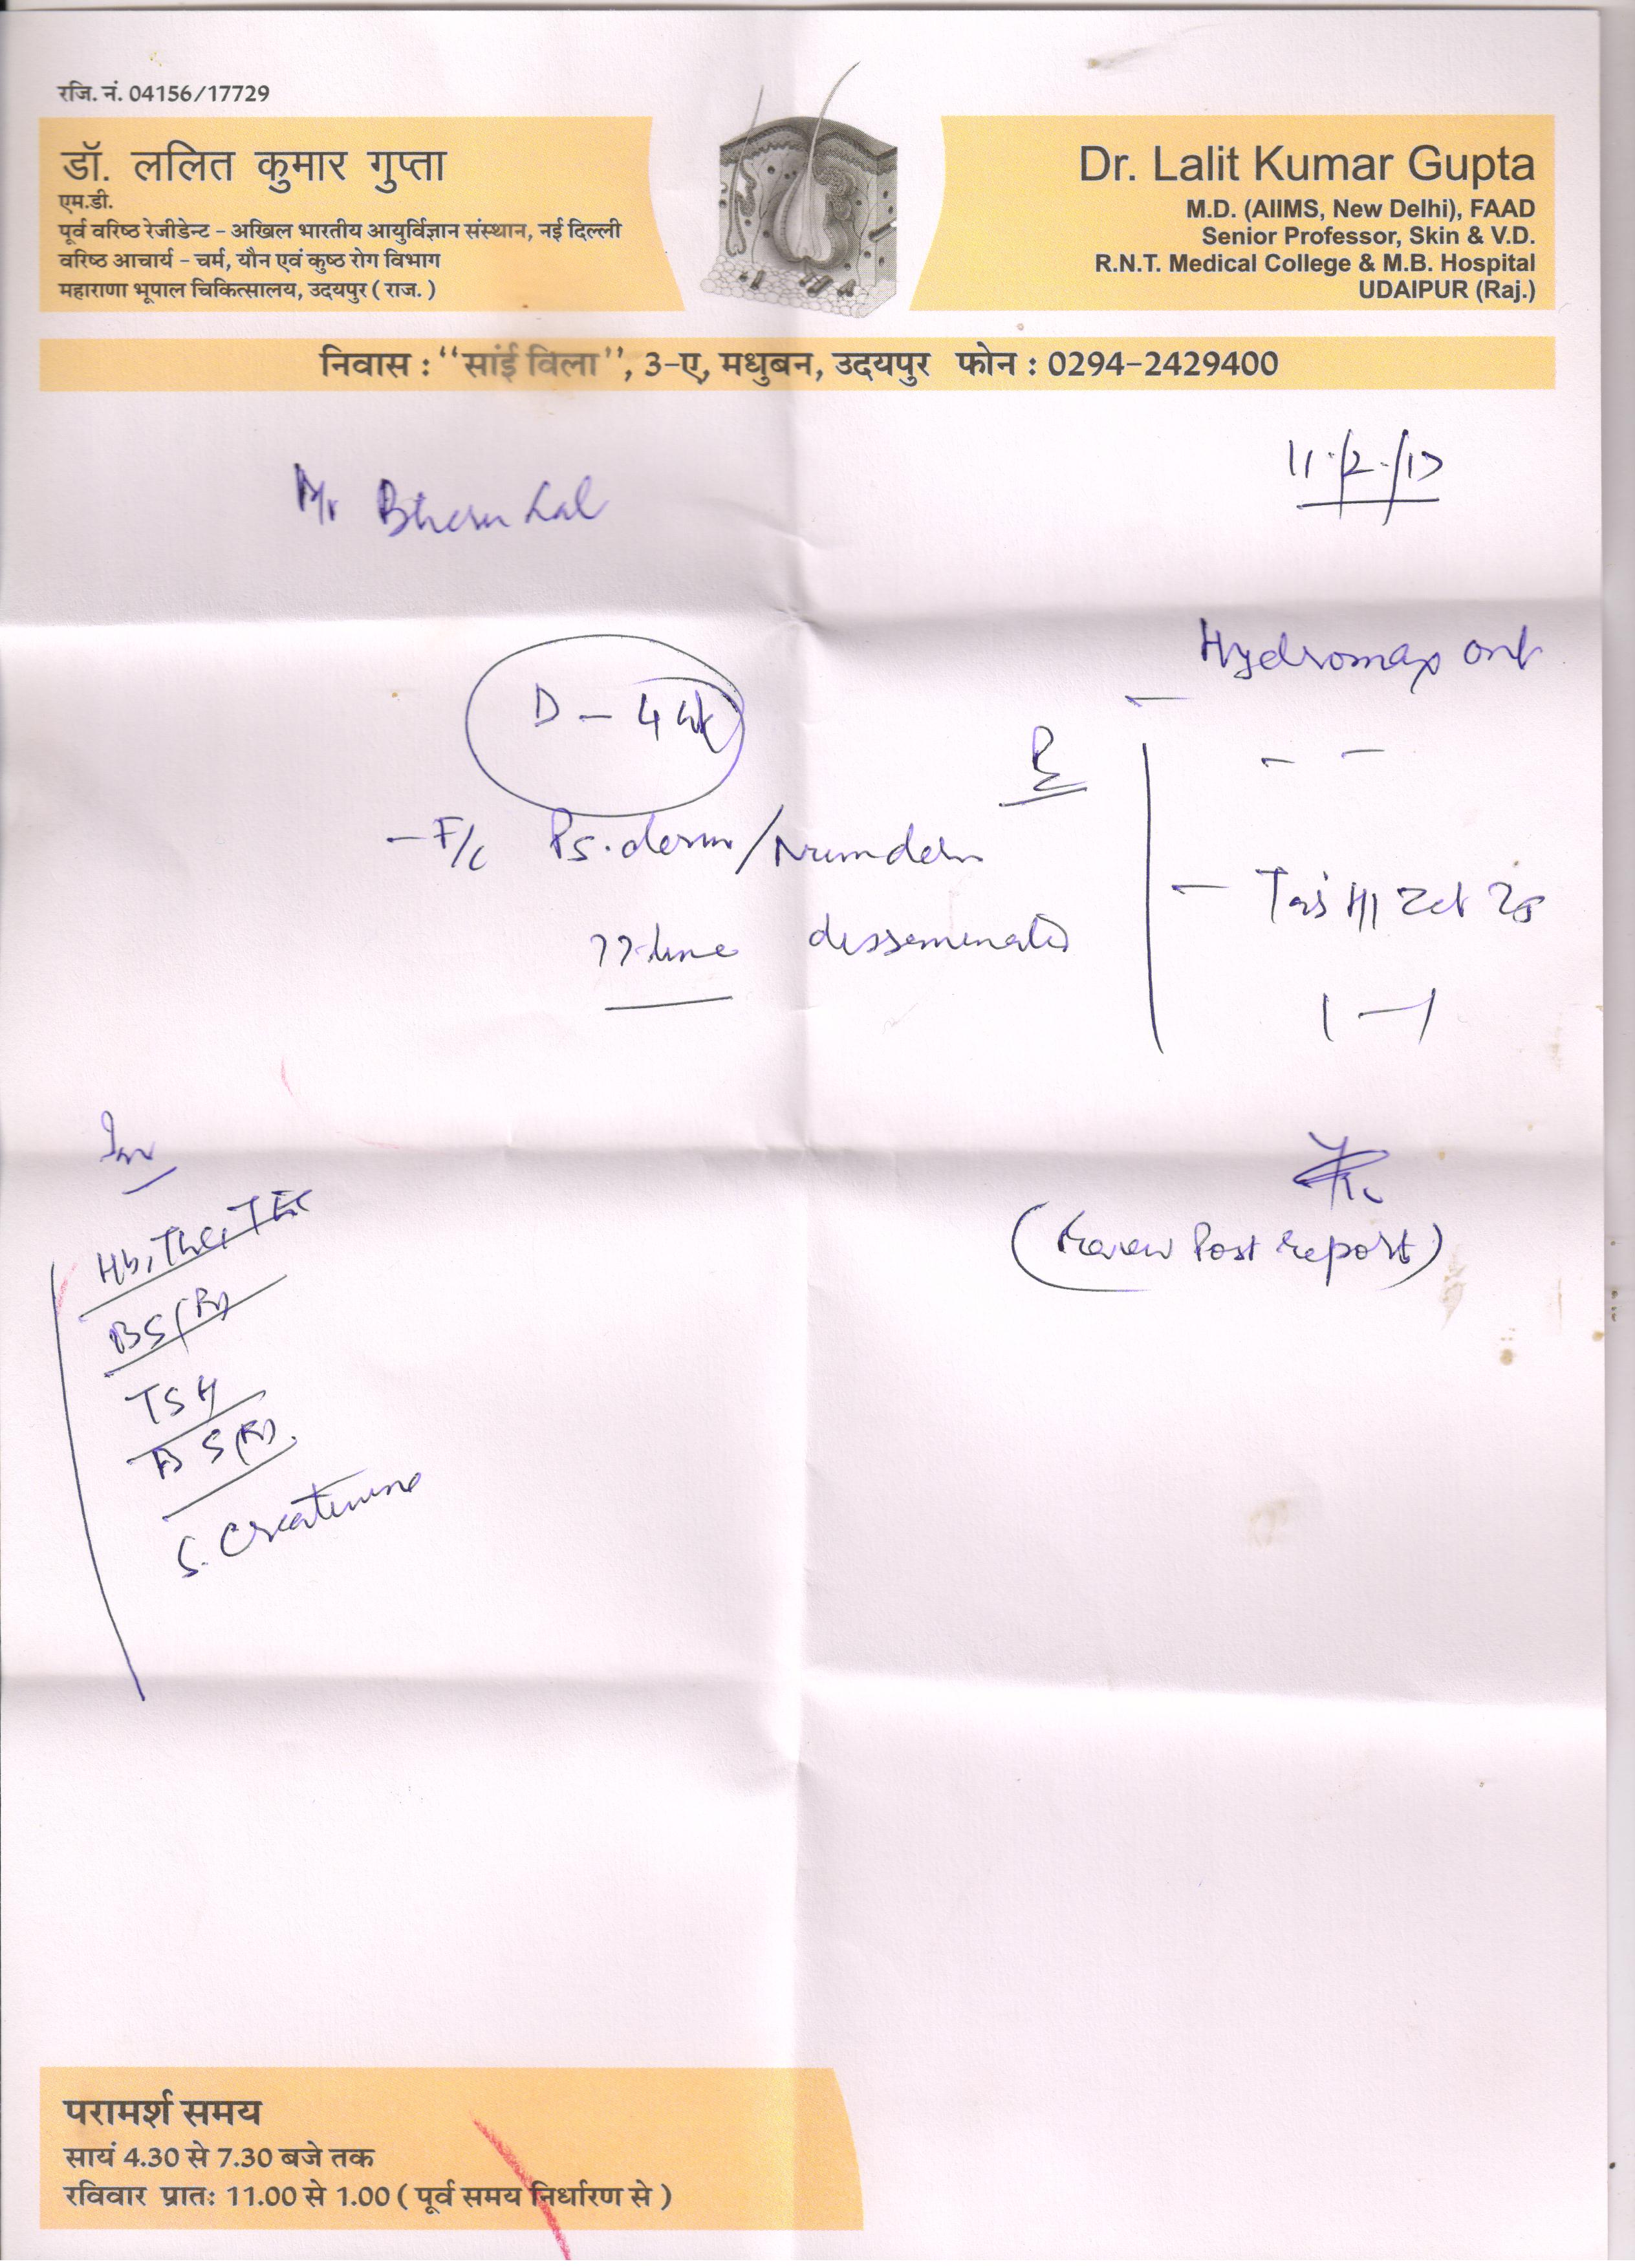 रजि. नं. 04156/17729
डॉ. ललित कुमार गुप्ता
एम.डी.
पूर्व वरिष्ठ रेजीडेन्ट - अखिल भारतीय आयुर्विज्ञान संस्थान, नई दिल्ली
वरिष्ठ आचार्य - चर्म, यौन एवं कुष्ठ रोग विभाग
महाराणा भूपाल चिकित्सालय, उदयपुर ( राज. )
Dr. Lalit Kumar Gupta
M.D. (AIIMS, New Delhi), FAAD
Senior Professor, Skin & V.D.
R.N.T. Medical College & M.B. Hospital
UDAIPUR (Raj.)
निवास : “सांई विला”, 3-ए, मधुबन, उदयपुर फोन : 0294-2429400
Mr Lal
D - 4 wk
- F/c Ps. derm/Numderm
disseminated
Hydromax oint
Inv
BS(R)
TSH
BS(R)
S. Creatinine
(Review Post report)
परामर्श समय
सायं 4.30 से 7.30 बजे तक
रविवार प्रातः 11.00 से 1.00 ( पूर्व समय निर्धारण से )